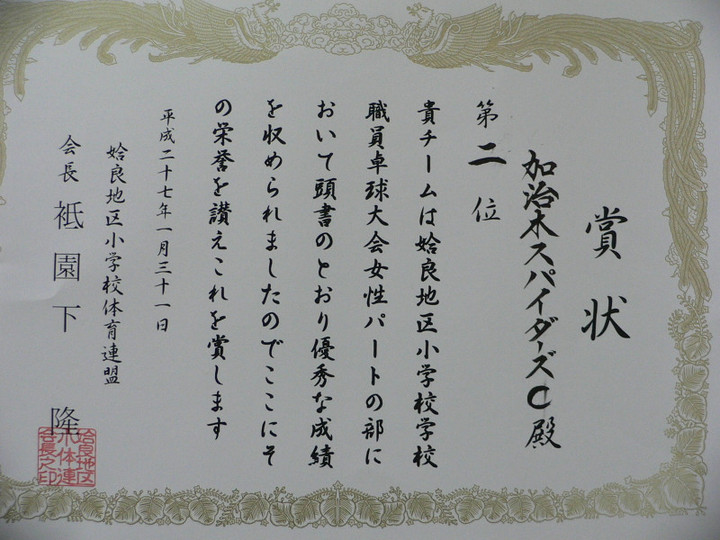 賞状
加治木スパイダーズC殿
第二位
貴チームは姶良地区小学校学校
職員卓球大会女性パートの部に
おいて頭書のとおり優秀な成績
を収められましたのでここにそ
の栄誉を讃えこれを賞します
平成二十七年一月三十一日
姶良地区小学校体育連盟
会長 祗園下 隆
姶良地区
小体連
会長之印